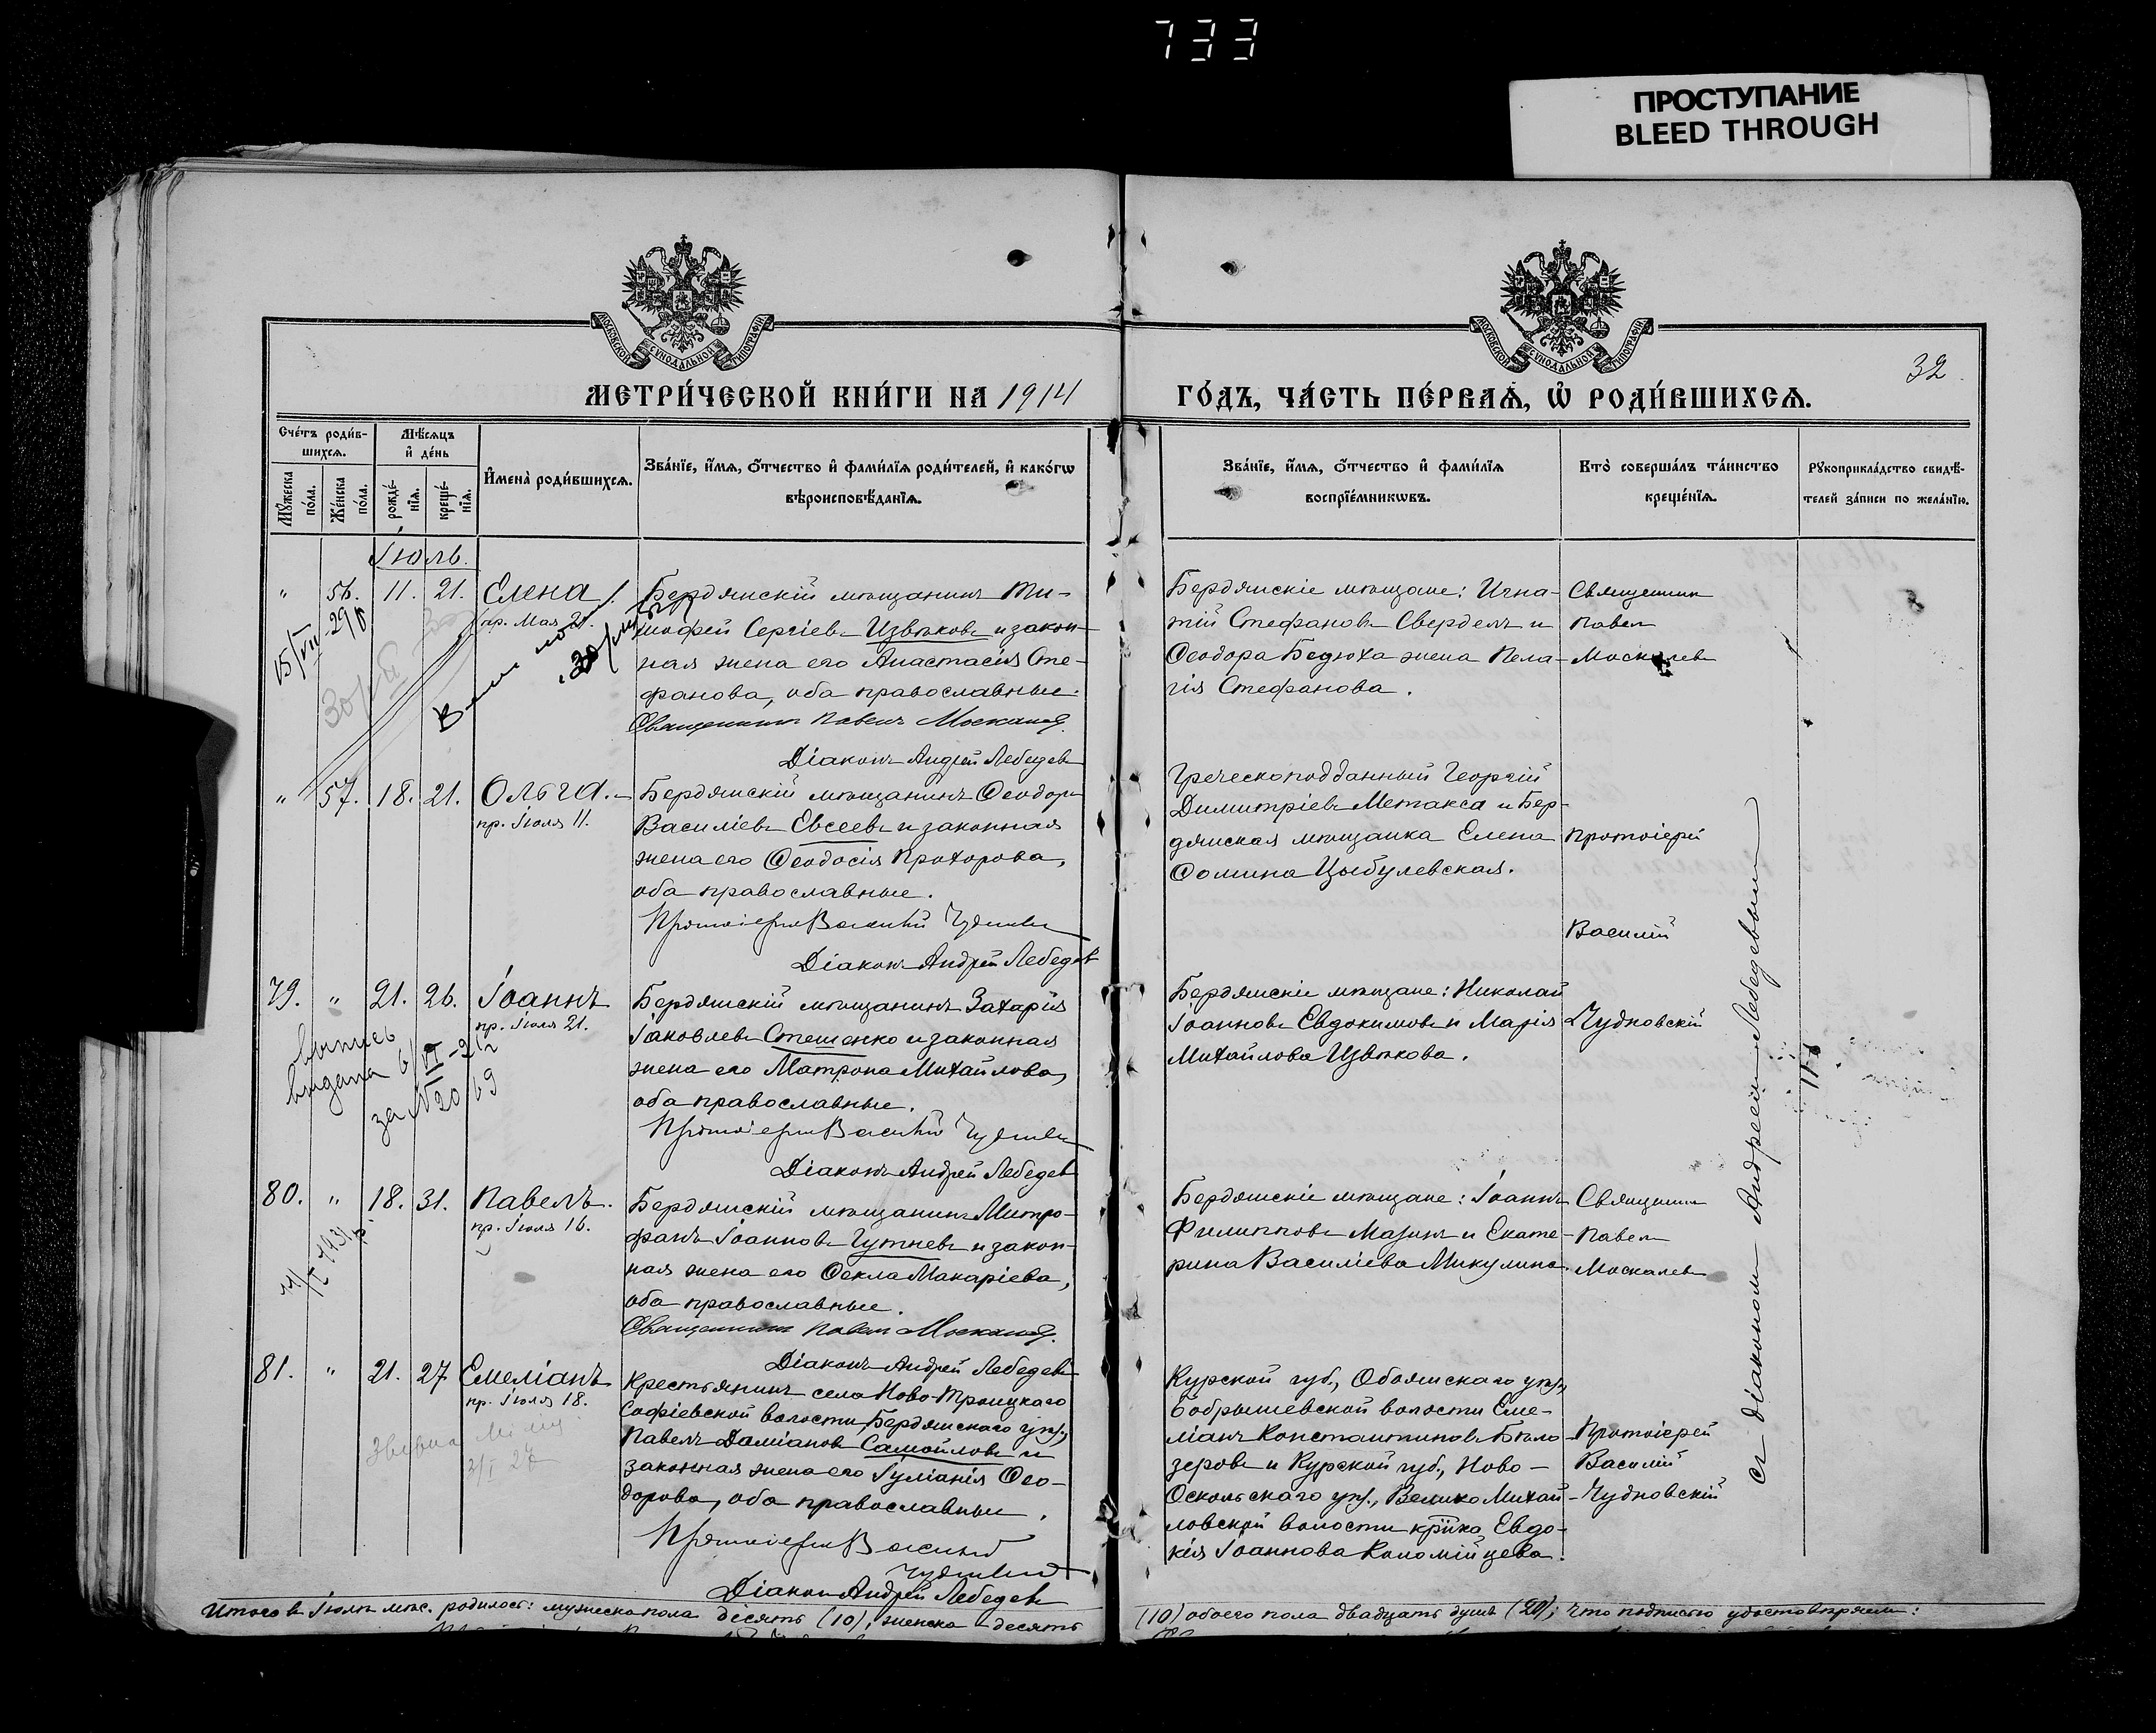 733
ПРОСТУПАНИЕ
BLEED THROUGH
МОСКОВСКОЙ СУНОДАЛЬНОЙ ТИПОГРАФІИ
МОСКОВСКОЙ СУНОДАЛЬНОЙ ТИПОГРАФІИ
32
МЕТРИ́ЧЕСКОЙ КНИ́ГИ НА 1914
ГО́ДЪ, ЧА́СТЬ ПЕ́РВАѦ, Ѡ҆ РОДИ́ВШИХСѦ.
Сче́тъ роди́в-
шихсѧ.
Мꙋ́жеска по́ла.
Же́нска по́ла.
Мѣ́сѧцъ
и҆ де́нь
рожде́-
нїѧ.
креще́-
нїѧ.
И҆мена̀ роди́вшихсѧ.
Зва́нїе, и҆́мѧ, ѻ҆́тчество и҆ фами́лїѧ роди́телей, и҆ како́гѡ
вѣроисповѣ́данїѧ.
Зва́нїе, и҆́мѧ, ѻ҆́тчество и҆ фами́лїѧ
воспрїе́мникѡвъ.
Кто̀ соверша́лъ та́инство
креще́нїѧ.
Рꙋкоприкла́дство свидѣ́-
телей за́писи по жела́нїю.
Іюль.
" 56. 11. 21. Елена
пр. Мая 21.
Бердянскій мѣщанинъ Ти-
мофей Сергіевъ Извѣковъ и закон-
ная жена его Анастасія Сте-
фанова, оба православные.
Священникъ Павелъ Москалевъ
Діаконъ Андрей Лебедевъ
Бердянскіе мѣщане: Игна-
тій Стефановъ Свердель и
Ѳеодора Бедюха жена Пела-
гія Стефанова.
Священникъ
Павелъ
Москалевъ
" 57. 18. 21. Ольга.
пр. Іюля 11.
Бердянскій мѣщанинъ Ѳеодоръ
Василіевъ Евсеевъ и законная
жена его Ѳеодосія Прохорова,
оба православные.
Протоіерей Василій
Діаконъ Андрей Лебедевъ
Греческоподданный Георгій
Димитріевъ Метакса и Бер-
дянская мѣщанка Елена
Ѳомина Цыбулевская.
Протоіерей
Василій
Чудновскій
79. " 21. 26. Іоаннъ
пр. Іюля 21.
выпись
выдана
за №
Бердянскій мѣщанинъ Захарія
Іаковлевъ Стешенко и законная
жена его Матрона Михайлова,
оба православные.
Протоіерей Василій
Діаконъ Андрей Лебедевъ
Бердянскіе мѣщане: Николай
Іоанновъ Евдокимовъ и Марія
Михайлова Извѣкова.
80. " 18. 31. Павелъ.
пр. Іюля 16.
Бердянскій мѣщанинъ Митро-
фанъ Іоанновъ Гутневъ и закон-
ная жена его Ѳекла Макаріева,
оба православные.
Священникъ Павелъ Москалевъ
Діаконъ Андрей Лебедевъ
Бердянскіе мѣщане: Іоаннъ
Филипповъ Мазинъ и Екате-
рина Василіева
Священникъ
Павелъ
Москалевъ
81. " 21. 27 Емеліанъ
пр. Іюля 18.
Крестьянинъ села Ново-Троицкаго
Софіевской волости, Бердянскаго уѣз.,
Павелъ Даміановъ Самойловъ и
законная жена его Іуліанія Ѳео-
дорова, оба православные.
Протоіерей Василій
Діаконъ Андрей Лебедевъ
Курской губ., Обоянскаго уѣз.,
Бобрышевской волости Еме-
ліанъ Константиновъ Бѣло-
зеровъ и Курской губ., Ново-
Оскольскаго уѣз., Велико-Михай-
ловской волости Евдо-
кія Іоаннова Коломійцева.
Протоіерей
Василій
Чудновскій
съ діакономъ Андреемъ Лебедевымъ
Итого въ Іюлѣ мѣс. родилось: мужеска пола десять (10), женска десять
(10) обоего пола двадцать душъ (20); что подписью удостовѣряемъ: